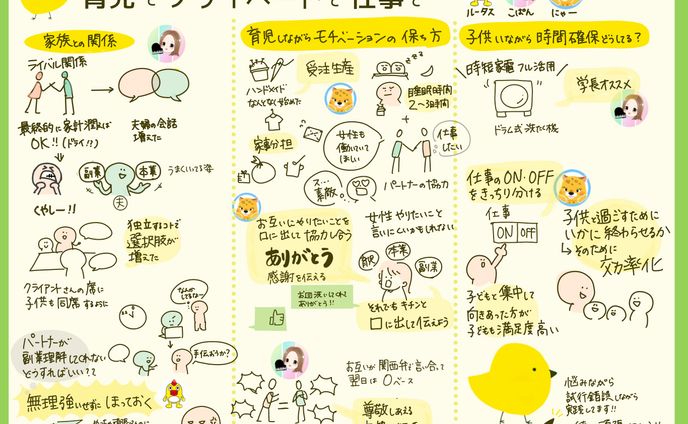 育児でプライベートで仕事で
ルータス
こぱん
にゃー
家族との関係
ライバル関係
最終的に家計潤えば
OK!!(ドライ!?)
夫婦の会話
増えた
副業
本業
うまくいってる姿
夫
くやしー!!
独立するコトで
選択肢が
増えた
クライアントさんの席に
子供も同席するように
なんかしてるなー
パートナーが
副業理解してくれない
どうすればいい??
手伝おうか?
無理強いせずに ほっておく
育児しながら モチベーションの 保ち方
ハンドメイド
なんとなく始めた
受注生産
睡眠時間
2〜3時間
家事分担
女性も
働いていて
ほしい
仕事
したい
ス…
素敵
パートナーの協力
お互いにやりたいことを
口に出して 協力し合う
ありがとう
感謝を伝える
女性 やりたいこと
言いにくいかもしれない
育児
本業
副業
お皿洗いしてくれて
ありがとう!!
それでも キチンと
口に出して伝えよう
お互いが 関西弁で言い合って
翌日は 0ベース
尊敬しあえる
子供いながら 時間確保どうしてる?
時短家電 フル活用
ドラム式 洗たく機
学長オススメ
仕事の ON・OFF
をきっちり分ける
仕事
ON OFF
子どもと 集中して
向きあった方が
子どもも満足度高い
子供と過ごすために
いかに 終わらせるか
そのために
効率化
悩みながら
試行錯誤しながら